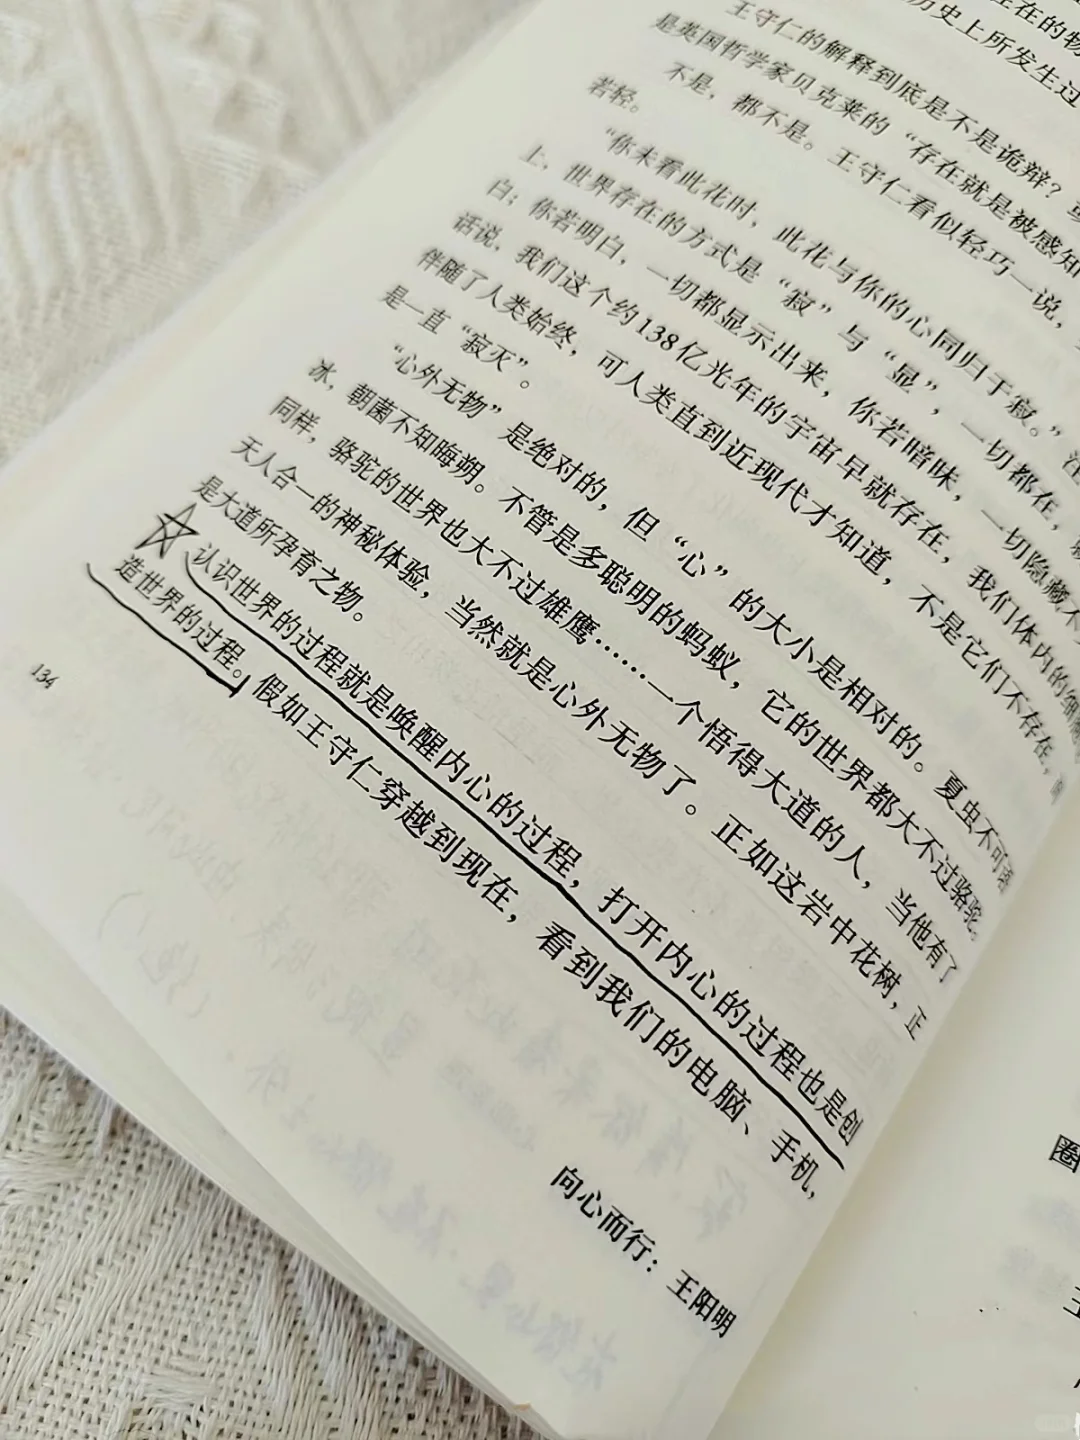 在的物
历史上所发生过
王守仁的解释到底是不是诡辩？
是英国哲学家贝克莱的“存在就是被感知
不是，都不是。王守仁看似轻巧一说，
若轻。
“你未看此花时，此花与你的心同归于寂。”
上，世界存在的方式是“寂”与“显”，一切都在，
白；你若明白，一切都显示出来，你若暗昧，一切隐藏不
话说，我们这个约138亿光年的宇宙早就存在，我们体内的细
伴随了人类始终，可人类直到近现代才知道，不是它们不存在，
是一直“寂灭”。
“心外无物”是绝对的，但“心”的大小是相对的。夏虫不可语
冰，朝菌不知晦朔。不管是多聪明的蚂蚁，它的世界都大不过骆驼。
同样，骆驼的世界也大不过雄鹰……一个悟得大道的人，当他有了
天人合一的神秘体验，当然就是心外无物了。正如这岩中花树，正
是大道所孕育之物。
认识世界的过程就是唤醒内心的过程，打开内心的过程也是创
造世界的过程。假如王守仁穿越到现在，看到我们的电脑、手机，
134
向心而行：王阳明
圈